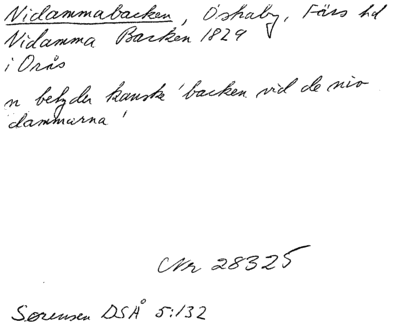 Nidammabacken, Öshaby, Färs hd
Nidamma Backen 1829
i Orås
n betyder kanske 'backen vid de nio
dammarna'
Nr 28325
Sørensen DSÅ 5:132